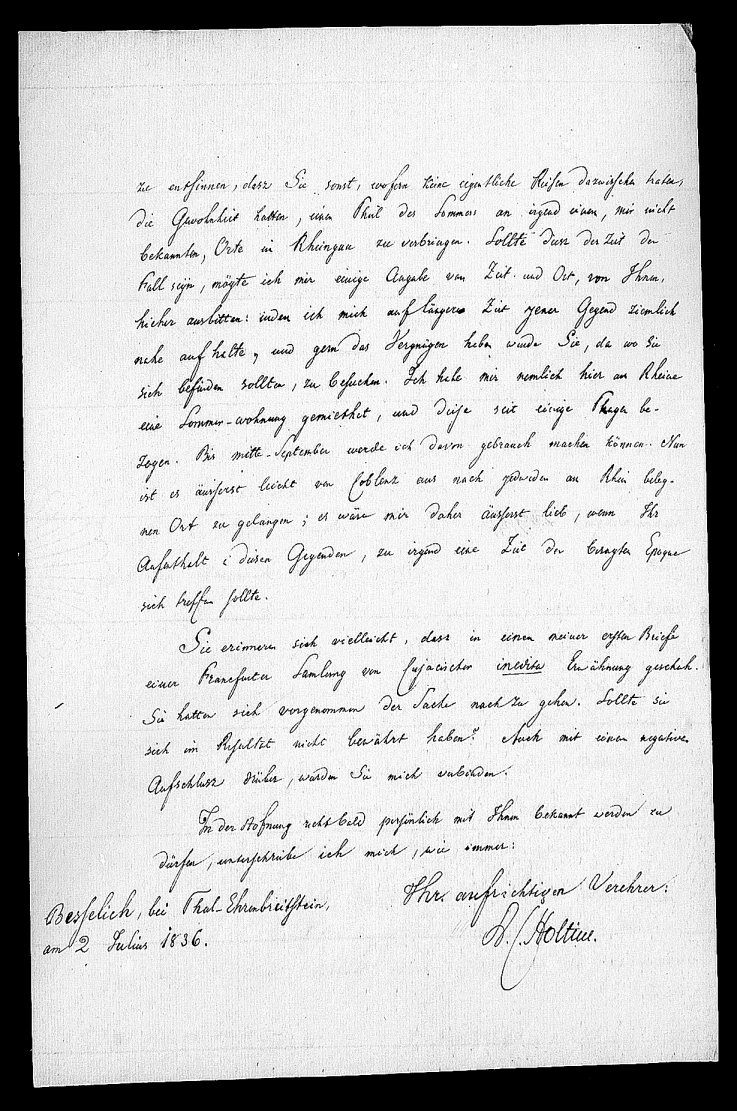 zu entsinnen, dasz Sie sonst, wofern keine eigentliche Reisen dazwischen traten,
die Gewohnheit hatten, einen Theil des Sommers an irgend einem, mir nicht
bekannten, Orte in Rheingau zu verbringen. Sollte diesz der Zeit der
Fall seÿn, mögte ich mir einige Angabe von Zeit und Ort, von Ihnen,
hieher ausbitten: indem ich mich auf längere Zeit jener Gegend ziemlich
nahe aufhalte, und gern das Vergnügen haben würde Sie, da wo Sie
sich befinden sollten, zu besuchen. Ich habe mir nemlich hier am Rheine
eine Sommer-wohnung gemiethet, und diese seit einige Thagen be-
zogen. Bis mitte-September werde ich davon gebrauch machen können. Nun
ist es äusserst leicht von Coblenz aus nach jedweden am Rhein beleg-
nen Ort zu gelangen; es wäre mir daher äusserst lieb, wenn Ihr
Aufenthalt i diesen Gegenden, zu irgend eine Zeit der besagten Epoque
sich treffen sollte.
Sie erinnern sich vielleicht, dasz in einem meiner ersten Briefe
einer Francfurter Samlung von Cujacischen inedita Erwähnung geschah.
Sie hatten sich vorgenommen der Sache nach zu gehen. Sollte sie
sich im Resultat nicht bewährt haben? Auch mit einem negativen
Aufschlusz drüber, würden Sie mich verbinden.
In der Hofnung recht bald persönlich mit Ihnen bekannt werden zu
dürfen, unterschreibe ich mich, wie immer:
Ihr aufrichtigen Verehrer:
Besselich, bei Thal-Ehrenbreitstein,
am 2 Julius 1836.
Holtius.